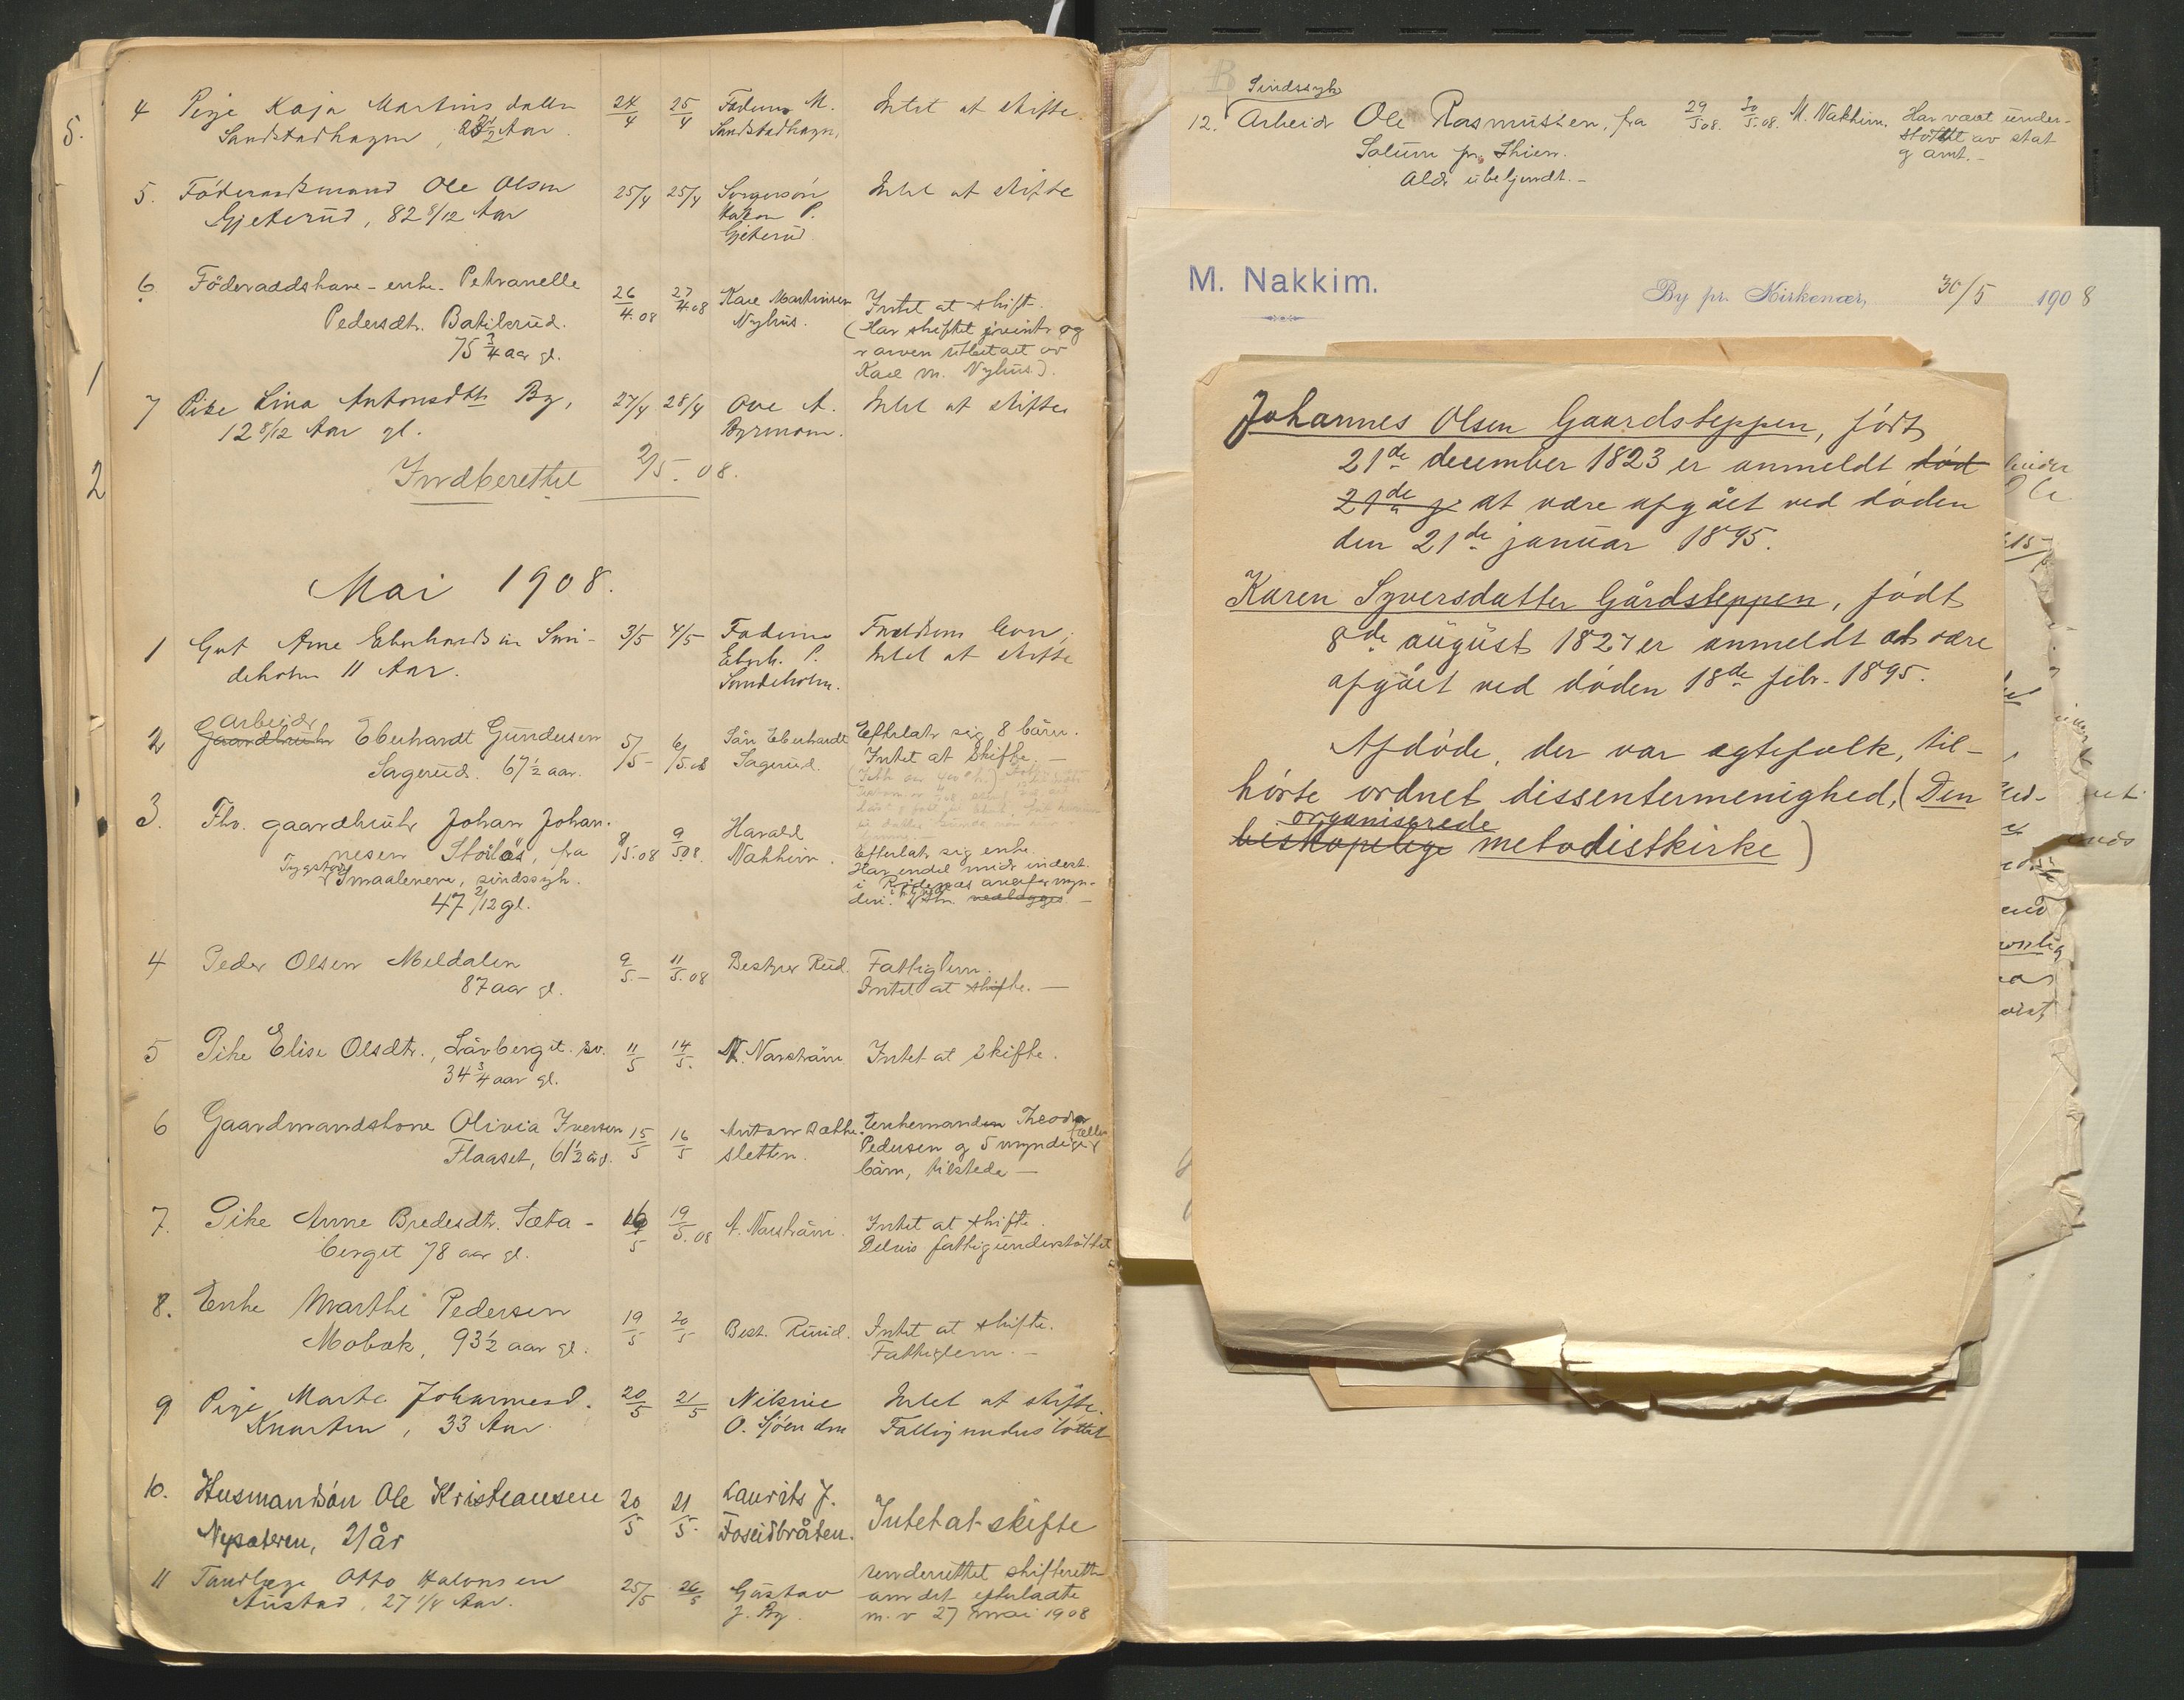 5.
1
2
4 Pige Kaja Martinsdatter 24/4 25/4 Faderen M. Intet at skifte.
Sandstadhagen, Aar Sandstadhagen,
5. Föderaadsmand Ole Olsen 25/4 25/4 Intet at skifte
Gjeterud, 82 8/12 Aar Håkon P.
Gjeterud.
6. Föderaadskone-enke Petranelle 26/4.08 27/4.08 Karl Martinsen Intet at skift.
Pedersdtr. Batikerud. Nyhus. (Har skiftet og
75 3/4 aar gl. arven utbetalt av
Karl M. Nyhus).
7 Pike Lina Antonsdtr By, 27/4 28/4 Ove A. Intet at skifte
12 8/12 Aar gl. Byrmoen.
Indberettet 2/5.08.
Mai 1908.
1 Gut Arne Eberhardsen Smi- 3/5 4/5 Faderen Forældrene lever,
deholm 11 Aar. Eberh. P. Intet at skifte
Smideholm.
Arbeider
2 Gaardbruker Eberhardt Gundersen 5/5- 6/5.08 Sön Eberhardt Efterlatr sig 8 börn.
Sagerud. 67 1/2 aar. Sagerud. Intet at skifte. -
3. Fhv. gaardbruker Johan Johan- 8/5.08 9/5.08. Harald
nesen Stöilås, fra Nakkim. Efterlatr sig enke.
Smaalenene, sindssyk. Har endel midr indest.
47 2/12 gl. i
vedlægges. -
4 Peder Olsen Meldalen 9/5.- 11/5.08 Bestyrer Rud. Fattiglem.
87 aar gl. Intet at skifte. -
5 Pike Elise Olsdtr., Lövberget. sv. 11/5 14/5. Intet at skifte.
34 3/4 aar gl.
6 Gaardmandskone Olivia Iversen 15/5 16/5 Anton Sætte- Enkemanden Theodor
Flaaset, 61 1/2 år. sletten. Pedersen og 5 myndige
börn, tilstede -
7. Pike Anne Bredesdtr. Sæta- 16/5 19/5.08 Intet at skifte.
berget 78 aar gl. Delvis fattigunderstöttet
8. Enke Marthe Pedersen 19/5 20/5 Best. Ruud. Intet at skifte.
Mobæk, 93 1/2 aar gl. Fattiglem. -
9 Pige Marte Johannesd. 20/5 21/5 Nilsine Intet at skifte.
Knarten, 33 Aar. O. Sjöenden Fattigunderstöttet
10. Husmandsön Ole Kristiansen 20/5 21/5. Laurits J. Intet at skifte
Nysæteren, 21 år Foseidbråten.
11 Tandlæge Otto Hakonsen 25/5 26/5 Gustav underrettet skifteretten
Austad, 27 1/4 Aar. J. By. om det efterladte
m. v 27 mai 1908
Sindssyk
12. Arbeidr Ole Rasmussen, fra 29/5 08. 30/5.08. M. Nakkim. Har vært under-
Solum pr. Skien. støttet av stat
Aldr ubekjendt.- og amt.-
M. Nakkim.
By pr. Kirkenær, 30/5 1908
Johannes Olsen Gaardsteppen, födt
21de december 1823 er anmeldt död
21de j at være afgået ved döden
den 21de januar 1895.
Karen Syversdatter Gårdsteppen, födt
8de august 1827 er anmeldt at være
afgået ved döden 18de febr. 1895.
Afdöde, der var ægtefolk, til-
hörte ordnet dissentermenighed, (Den
organiserede
biskopelige metodistkirke)